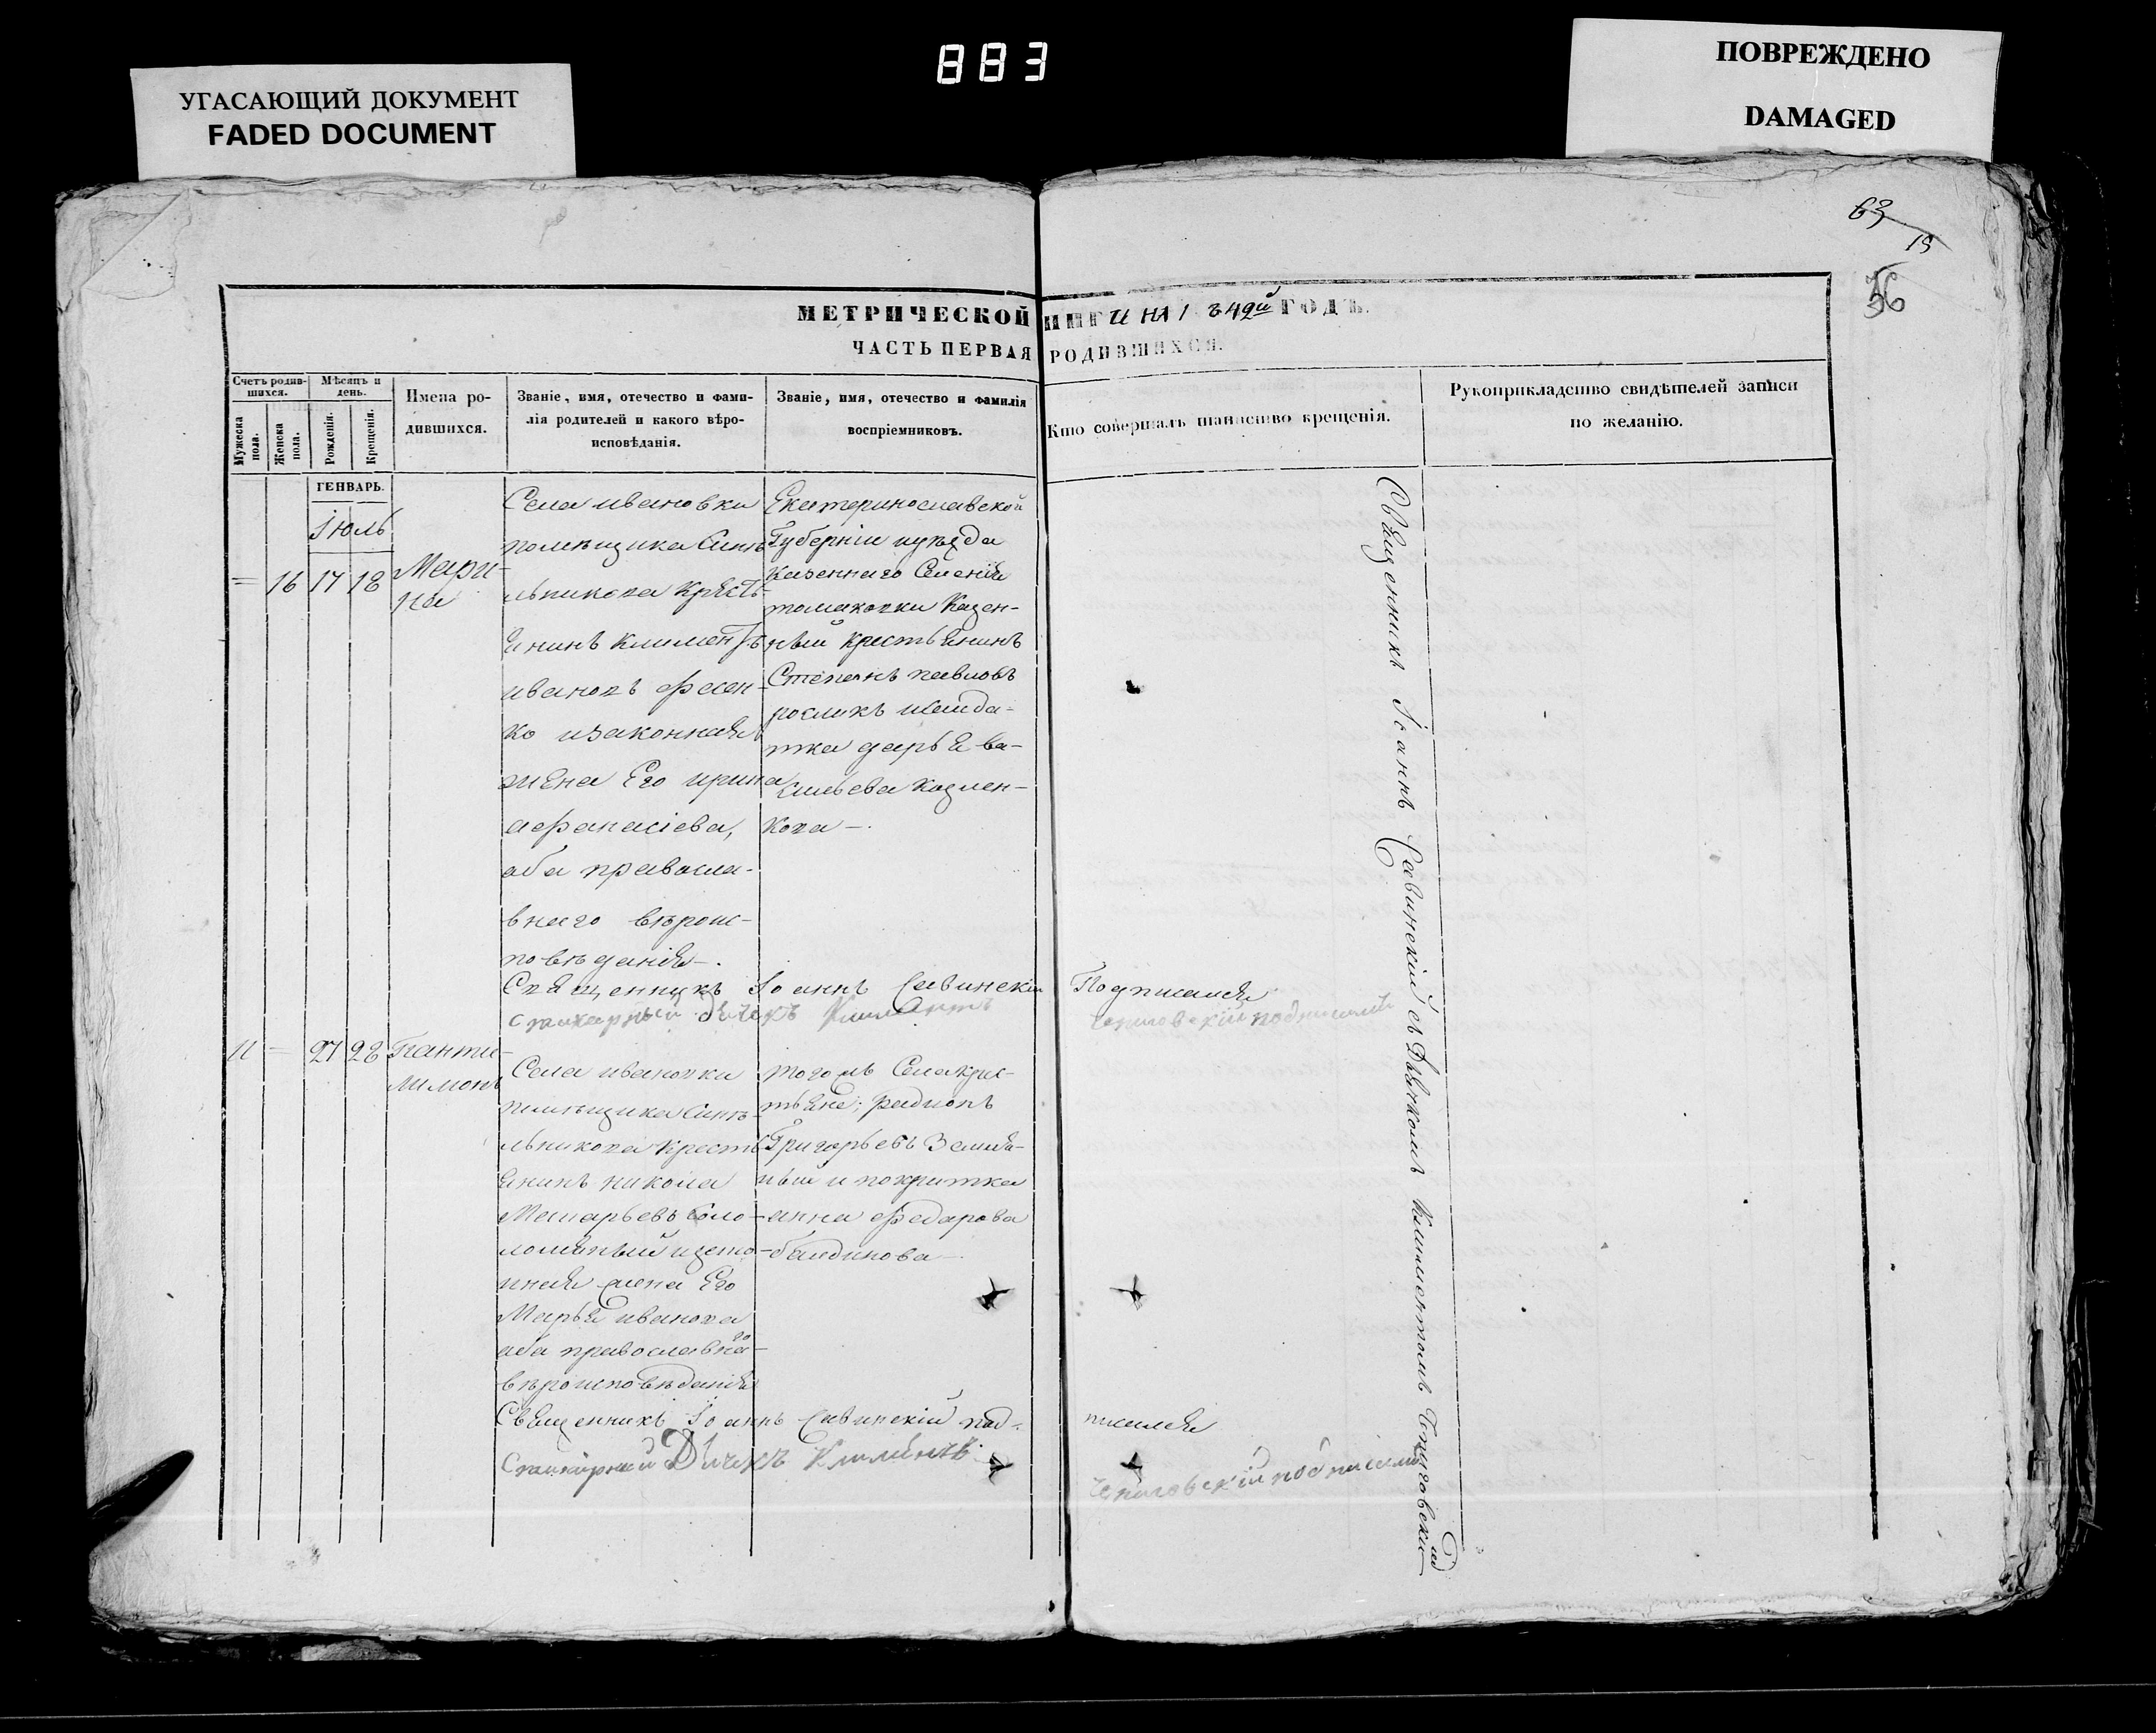 883
УГАСАЮЩИЙ ДОКУМЕНТ
FADED DOCUMENT
ПОВРЕЖДЕНО
DAMAGED
63
15
МЕТРИЧЕСКОЙ КНИГИ НА 1849й ГОДЪ.
ЧАСТЬ ПЕРВАЯ РОДИВШИХСЯ.
Счетъ родив-
шихся.
Мужеска
пола.
Женска
пола.
Мѣсяцъ и
день.
Рожденія.
Крещенія.
Имена ро-
дившихся.
Званіе, имя, отечество и фами-
лія родителей и какого вѣро-
исповѣданія.
Званіе, имя, отечество и фамилія
воспріемниковъ.
Кто совершалъ таинство крещенія.
Рукоприкладство свидѣтелей записи
по желанію.
ГЕНВАРЬ.
Іюль
= 16 17 18
Мари-
на
Села ивановки
помѣщика Синѣ-
льникова Крестъ-
янинъ климентъ
ивановъ фесен-
ко изаконная
жена Его ирина
афанасіева,
оба правосла-
внаго вѣроис-
повѣданія.
Екатеринославской
Губерніи иуѣзда
казеннаго Селенія
томаковки Казен-
ный крестьянинъ
Степанъ павловъ
дарья ва-
сильева козмен-
кова
Священникъ Іоаннъ Савинскій Подписался
Стихарный дьчекъ Климентъ подписалъ
11 = 27 28
Панти-
лимонъ
Села ивановки
помѣщика Синѣ-
льникова Кресть-
янинъ никола
изето-
иная жена Его
Марья иванова
оба православнаго
вѣроисповѣданія
тогожъ Села крес-
тьяне; радионъ
Григорьевъ
и покритка
анна федорова
Священникъ Іоаннъ Савинскій под-писался
Стихарный Дьчекъ Климентъ подписалъ
Священникъ Іоаннъ Савинскій съ Дьячкомъ Климентомъ